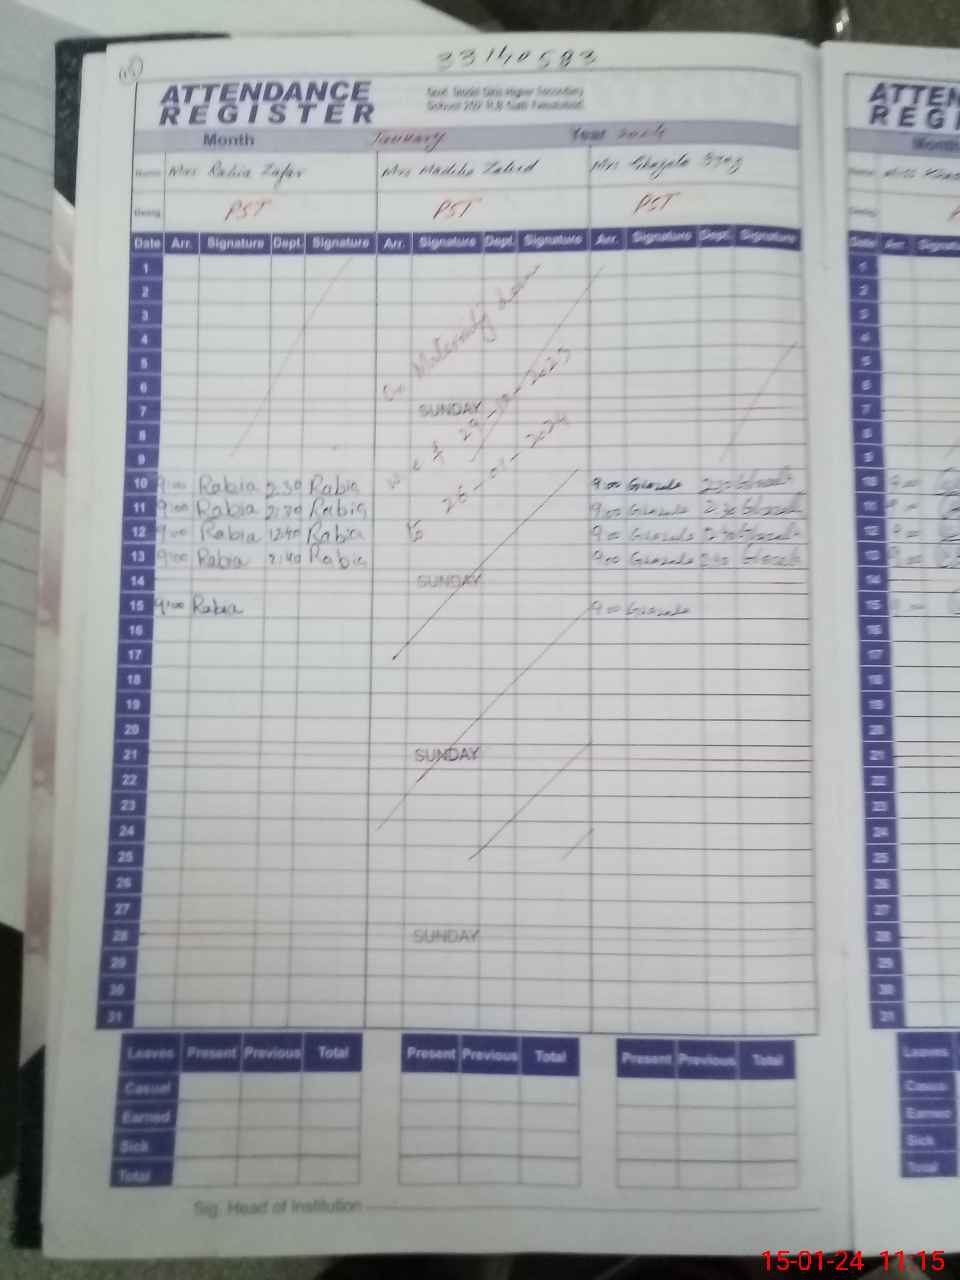 33140583
ATTENDANCE
REGISTER
Month January Year 2024
Name Mrs Rabia Zafar Mrs Madiha Zahid Mrs Ghazala
Desig. PST PST PST
Date Arr. Signature Dept. Signature Arr. Signature Dept. Signature Arr. Signature Dept. Signature
1
2
3
4
5
6
7 SUNDAY
8
9
On Maternity
w.e.f 29-12-2023
to 26-01-2024
10 9:00 Rabia 2:30 Rabia 9:00 Ghazala 2:30 Ghazala
11 9:00 Rabia 2:30 Rabia 9:00 Ghazala 2:30 Ghazala
12 9:00 Rabia 12:40 Rabia 9:00 Ghazala Ghazala
13 9:00 Rabia 2:40 Rabia 9:00 Ghazala Ghazala
14 SUNDAY
15 9:00 Rabia 9:00 Ghazala
16
17
18
19
20
21 SUNDAY
22
23
24
25
26
27
28 SUNDAY
29
30
31
Leaves Present Previous Total Present Previous Total Present Previous Total
Casual
Earned
Sick
Total
Sig. Head of Institution
ATTEN
REG
Month
Date Arr.
1
2
3
4
5
6
7
8
9
10
11
12
13
14
15
16
17
18
19
20
21
22
23
24
25
26
27
28
29
30
31
Leaves
Casua
Earned
Sick
Total
15-01-24 11:15